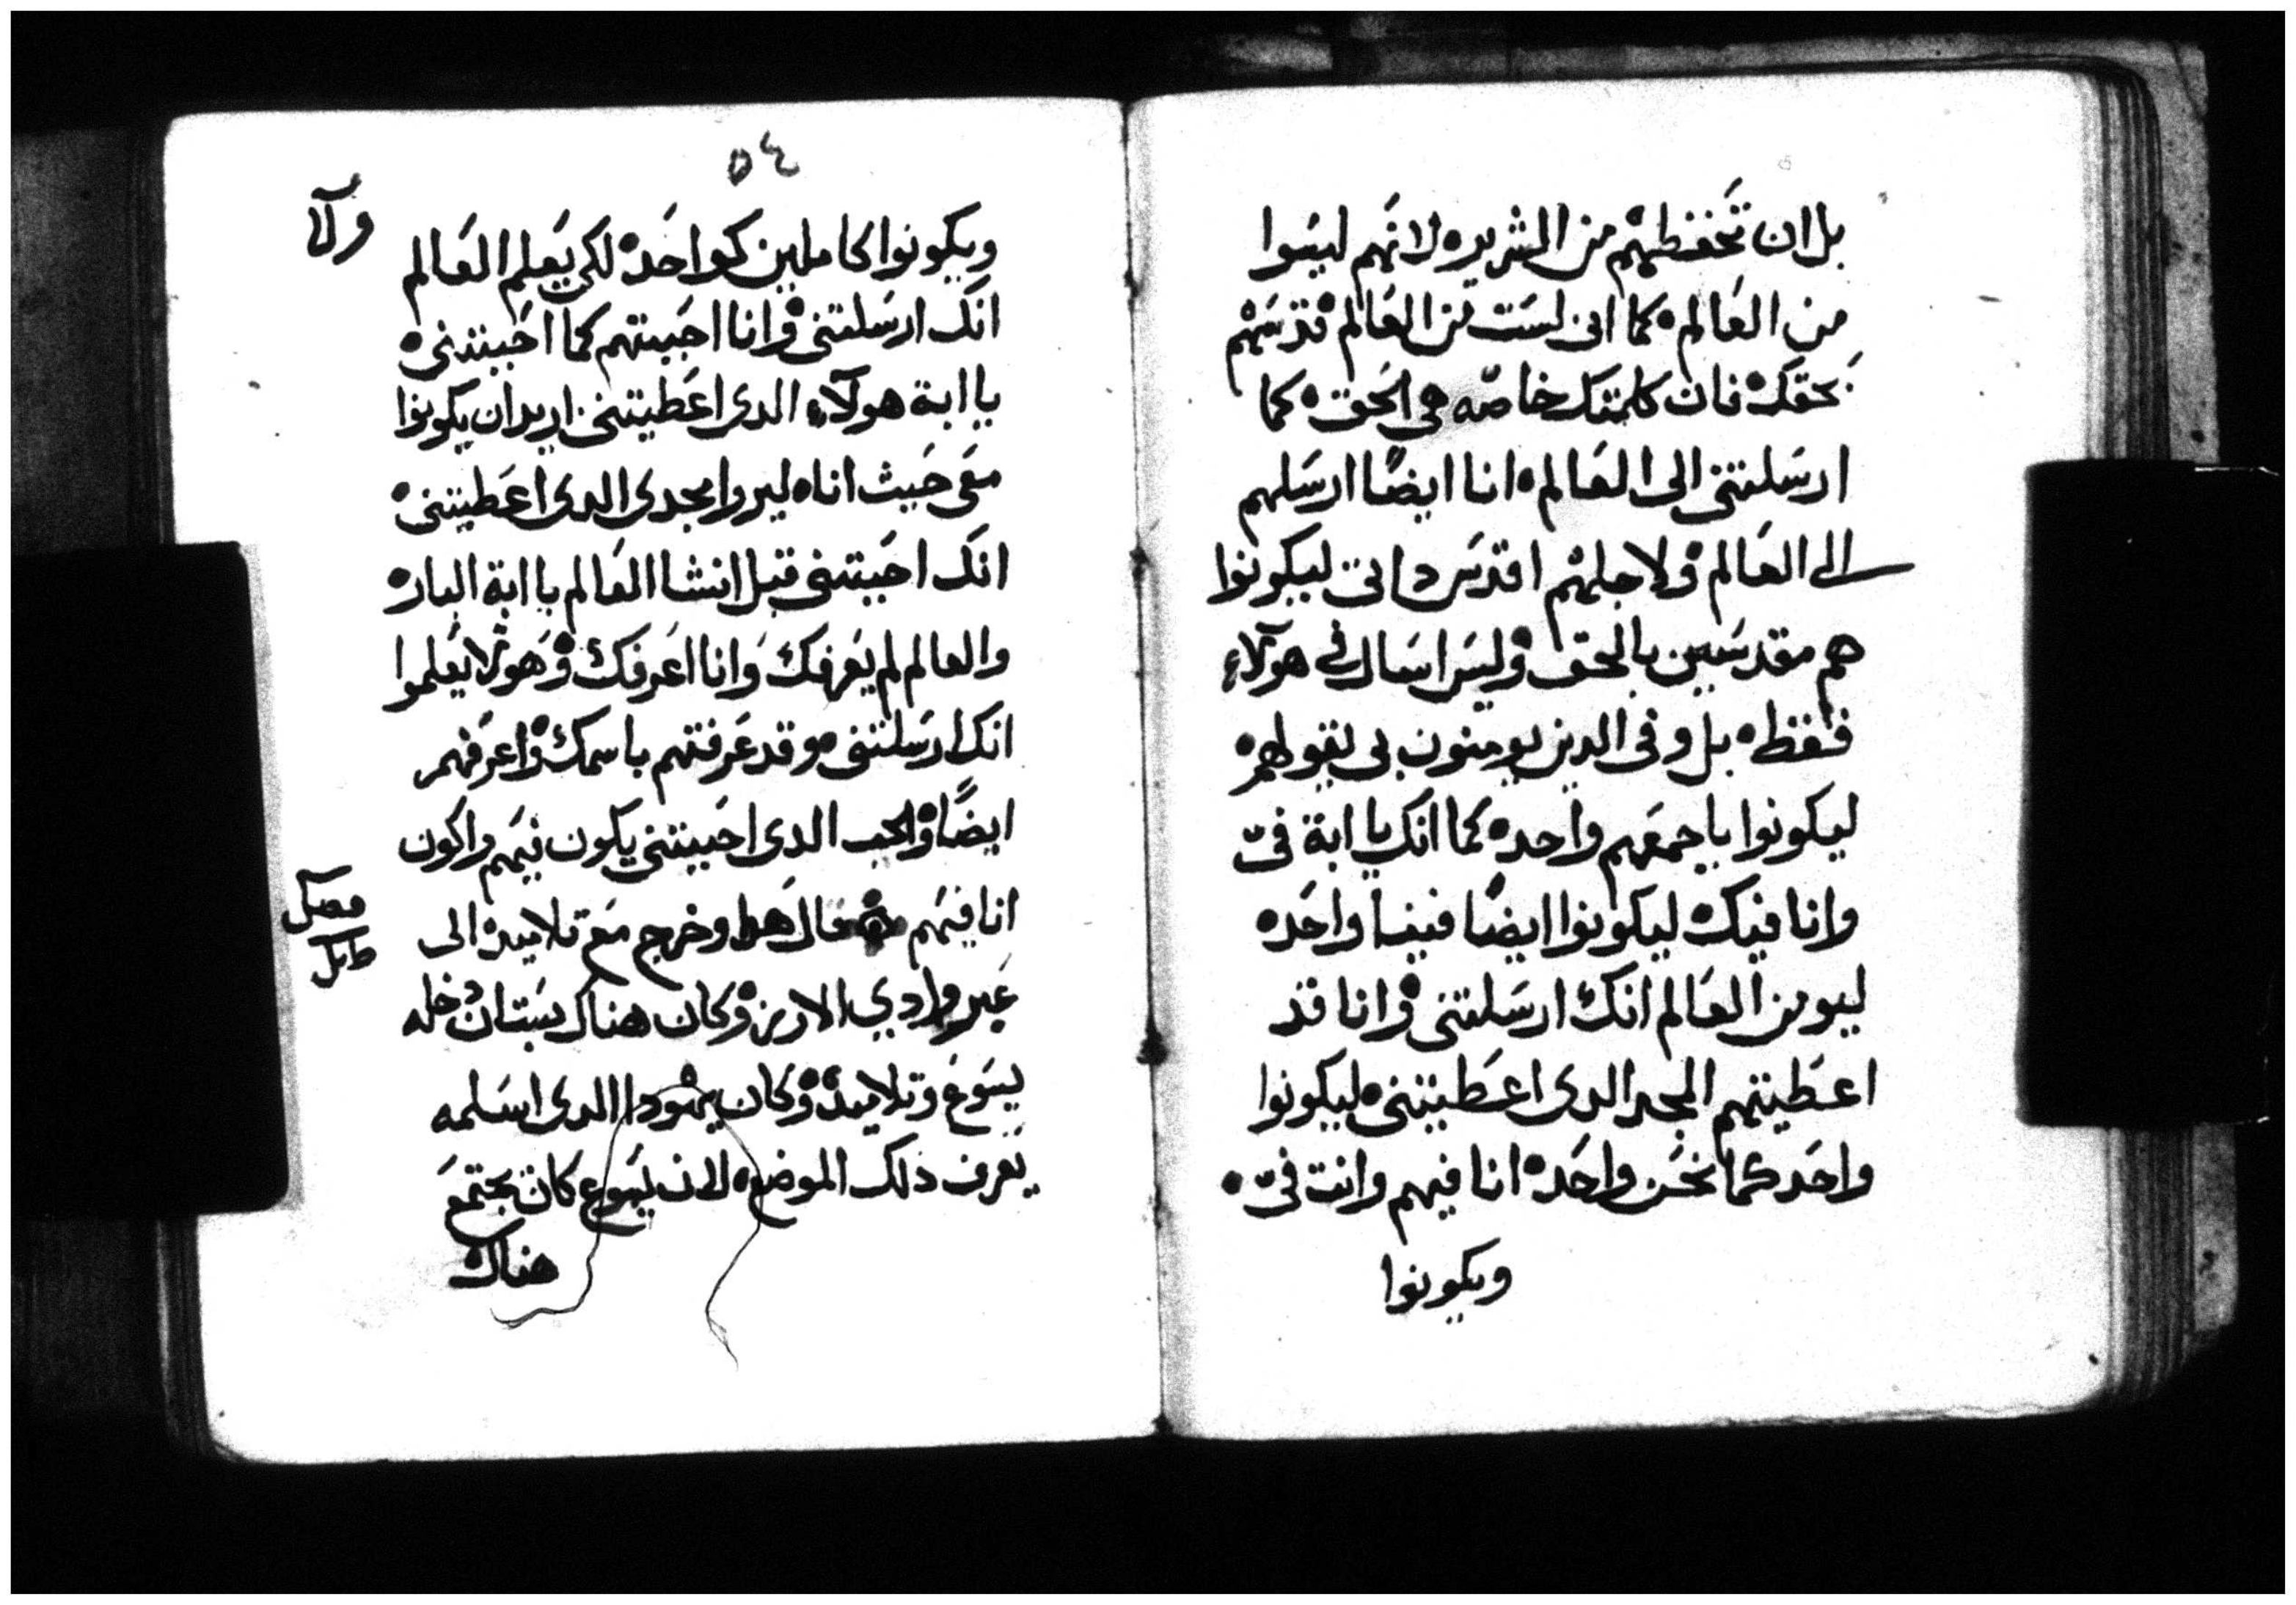 بل ان تحفظهم من الشرير ه لانهم ليسوا
من العالم ه كما انى لست من العالم ه قدسهم
بحقك ه فان كلمتك خاصه هى الحق ه كما
ارسلتنى الى العالم ه انا ايضًا ارسلهم
الى العالم ه ولاجلهم اقدس داتى ليكونوا
هم مقدسين بالحق ه وليس اسال فى هولآء
فقط ه بل وفى الدين يومنون بى بقولهم ه
ليكونوا باجمعهم واحد ه كما انك يا ابة فىّ
وانا فيك ه ليكونوا ايضًا فينا واحد ه
ليومن العالم انك ارسلتنى ه وانا قد
اعطيتهم المجد الدى اعطيتنى ه ليكونوا
واحد كما نحن واحد ه انا فيهم وانت فىّ ه
ويكونوا
٥٤
ويكونوا كاملين كواحد ه لكى يعلم العالم
انك ارسلتنى ه وانا احببتهم كما احببتنى ه
يا ابة هولآء الدى اعطيتنى اريد ان يكونوا
معى حيث انا ه ليروا مجدى الدى اعطيتنى ه
انك احببتنى قبل انشا العالم يا ابة البار ه
والعالم لم يعرفك وانا اعرفك ه وهولا يعلموا
انك ارسلتنى ه وقد عرفتهم باسمك ه واعرفهم
ايضًا ه والحب الدى احببتنى يكون فيهم واكون
انا فيهم ه قال هدا وخرج مع تلاميده الى
عبر وادي الارز ه وكان هناك بستان دخله
يسوع وتلاميده ه وكان يهودا الدى اسلمه
يعرف ذلك الموضع ه لان يسوع كان يجتمع
هناك
فصل